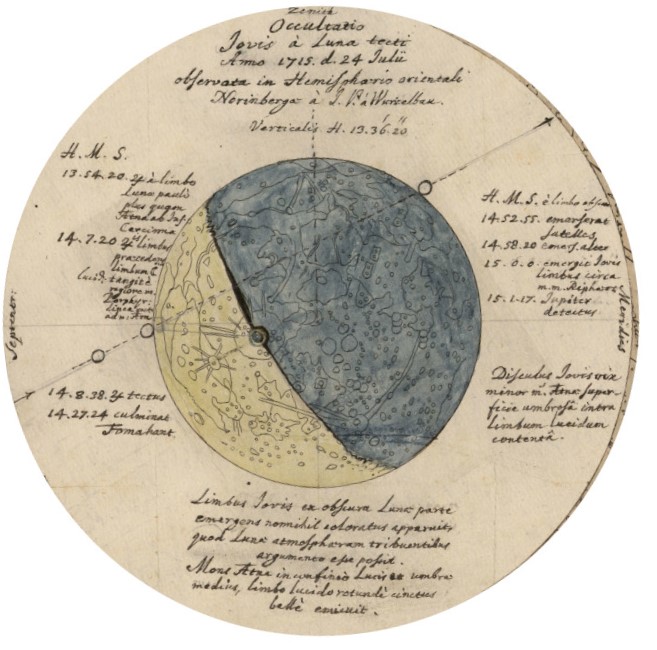 Zenith
Occultatio
Jovis à Luna tecti
Anno 1715. d. 24 Julii
observata in Hemisphærio orientali
Norinbergæ à J. P. à Wurzelbau.
Verticalis H. 13. 36. 20
H. M. S.
13. 54. 20. ♃ à limbo
lunæ paulò
plus quam
Ætna ab Inf.
14. 7. 20 ♃ limbus
præcedens
limbum ☾
lucid: tangit è
regione m.
Porphyr:
14. 8. 38. ♃ tectus
14. 27. 24 culminat
Fomahant.
Septentr:
H. M. S. è limbo obscu
14. 52. 55. emerserat
satelles
14. 58. 20 emers. alter
15. 0. 0. emergit Jovis
limbus circa
m. m. Riphæos
15. 1. 17. Jupiter
detectus
Meridies
Disculus Jovis vix
minor m. Ætnæ super-
ficie umbrosâ intra
limbum lucidum
contentâ.
Limbus Jovis ex obscura Lunæ parte
emergens nonnihil coloratus apparuit,
quod Lunæ atmosphæram tribuentibus
argumento esse possit.
Mons Ætna in confinio Lucis et umbræ
medius, limbo lucido rotundè cinctus
bellè emicuit.